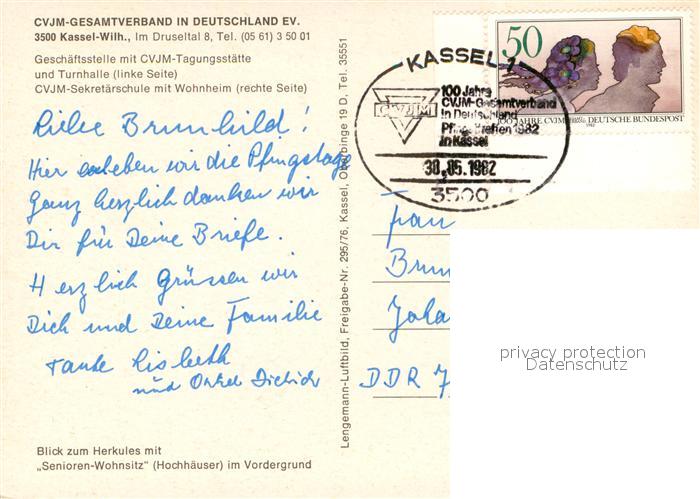 CVJM-GESAMTVERBAND IN DEUTSCHLAND EV.
3500 Kassel-Wilh., Im Druseltal 8, Tel. (05 61) 3 50 01
Geschäftsstelle mit CVJM-Tagungsstätte
und Turnhalle (linke Seite)
CVJM-Sekretärschule mit Wohnheim (rechte Seite)
Liebe Brunhild!
Hier erleben wir die Pfingsttage
Ganz herzlich danken wir
Dir für Deine Briefe.
Herzlich Grüssen wir
Dich und Deine Familie
Tante Lisbeth
und Onkel Dietrich
Blick zum Herkules mit
„Senioren-Wohnsitz" (Hochhäuser) im Vordergrund
Lengemann-Luftbild, Freigabe-Nr. 295/76, Kassel, Oberbinge 19 D, Tel. 35551
KASSEL 1
CVJM
100 Jahre
CVJM-Gesamtverband
in Deutschland
Pfingsttreffen 1982
in Kassel
30.05.1982
3500
50
100 JAHRE CVJM DEUTSCHE BUNDESPOST
1982
Frau
Brun
Joha
DDR 7
privacy protection
Datenschutz